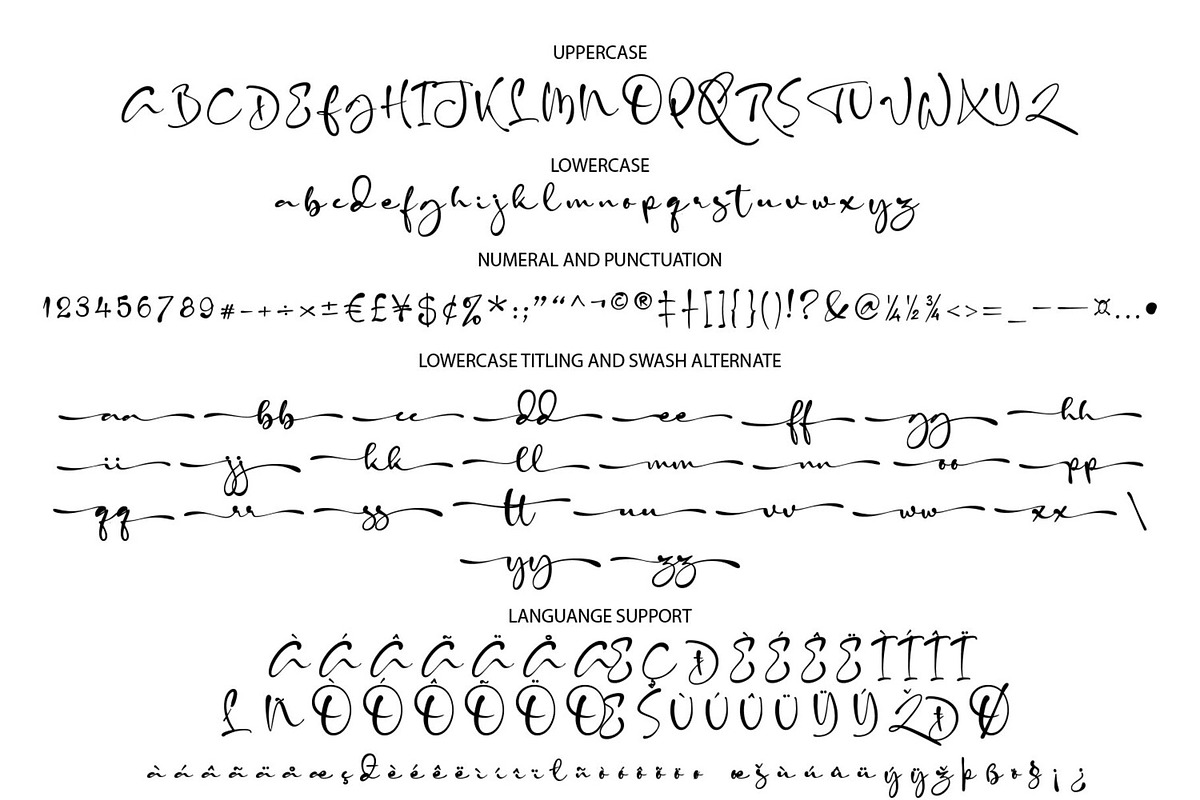 UPPERCASE
A B C D E F G H I J K L M N O P Q R S T U V W X Y Z
LOWERCASE
a b c d e f g h i j k l m n o p q r s t u v w x y z
NUMERAL AND PUNCTUATION
1 2 3 4 5 6 7 8 9 # - + ÷ × ± € £ ¥ $ ¢ % * : ; ” “ ^ ¬ © ® ‡ † [ ] { } ( ) ! ? & @ ¼ ½ ¾ < > = _ – — ¤ … •
LOWERCASE TITLING AND SWASH ALTERNATE
aa bb cc dd ee ff gg hh
ii jj kk ll mm nn oo pp
qq rr ss tt uu vv ww xx \
yy zz
LANGUANGE SUPPORT
À Á Â Ã Ä Å Æ Ç Ð È É Ê Ë Ì Í Î Ï
Ł Ñ Ò Ó Ô Õ Ö Œ Š Ù Ú Û Ü Ÿ Ý Ž Đ Ø
à á â ã ä å æ ç ð è é ê ë ì í î ï ł ñ ò ó ô õ ö ø œ š ù ú û ü ý ÿ ž þ ß § ¡ ¿